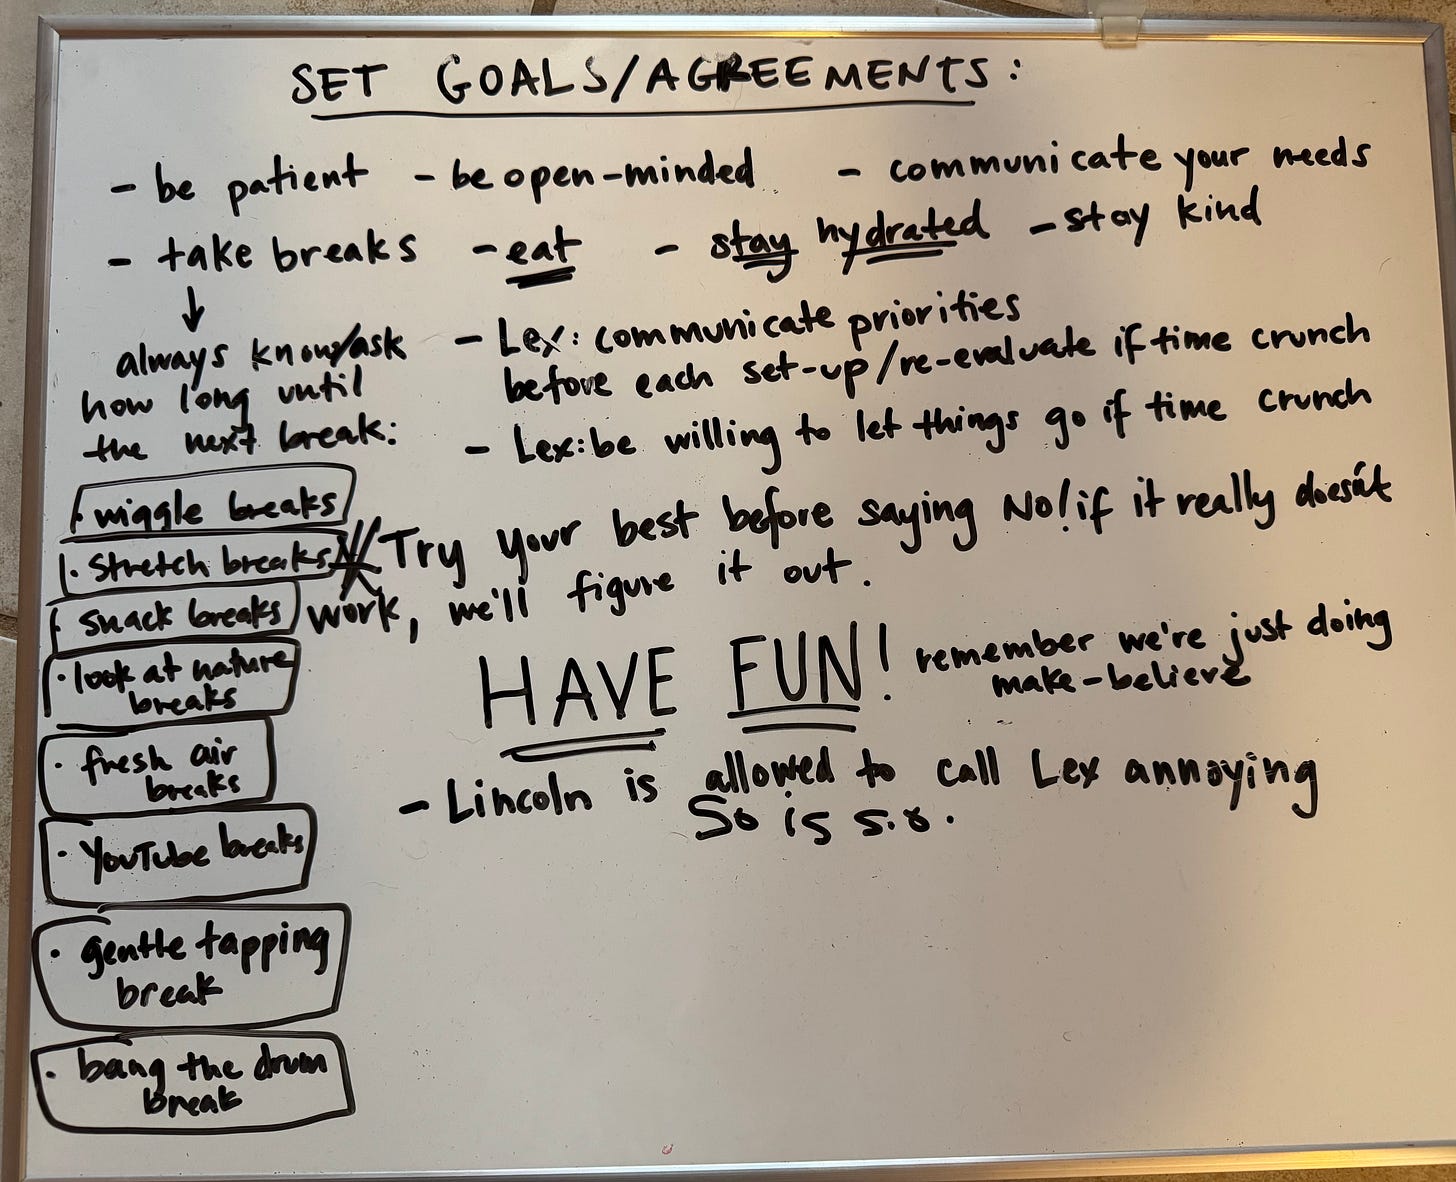 SET GOALS/AGREEMENTS:
- be patient - be open-minded - communicate your needs
- take breaks - eat - stay hydrated - stay kind
↓
always know/ask
how long until
the next break:
· wiggle breaks
· stretch breaks
· snack breaks
· look at nature
breaks
· fresh air
breaks
· YouTube breaks
· gentle tapping
break
· bang the drum
break
- Lex: communicate priorities
before each set-up/re-evaluate if time crunch
- Lex: be willing to let things go if time crunch
Try your best before saying No! if it really doesn't
work, we'll figure it out.
HAVE FUN! remember we're just doing
make-believe
- Lincoln is allowed to call Lex annoying
So is s.o.